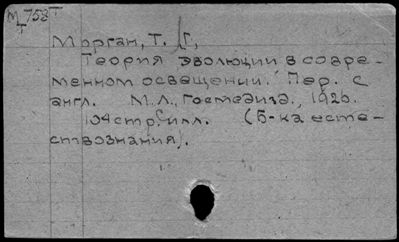 М 758 Т
Т
Морган, Т. Г,
Теория эволюции в совре-
менном освещении. Пер. с
англ. М. Л., Госмедизд.,
104 стр. с илл. (Б-ка есте-
ствознания).